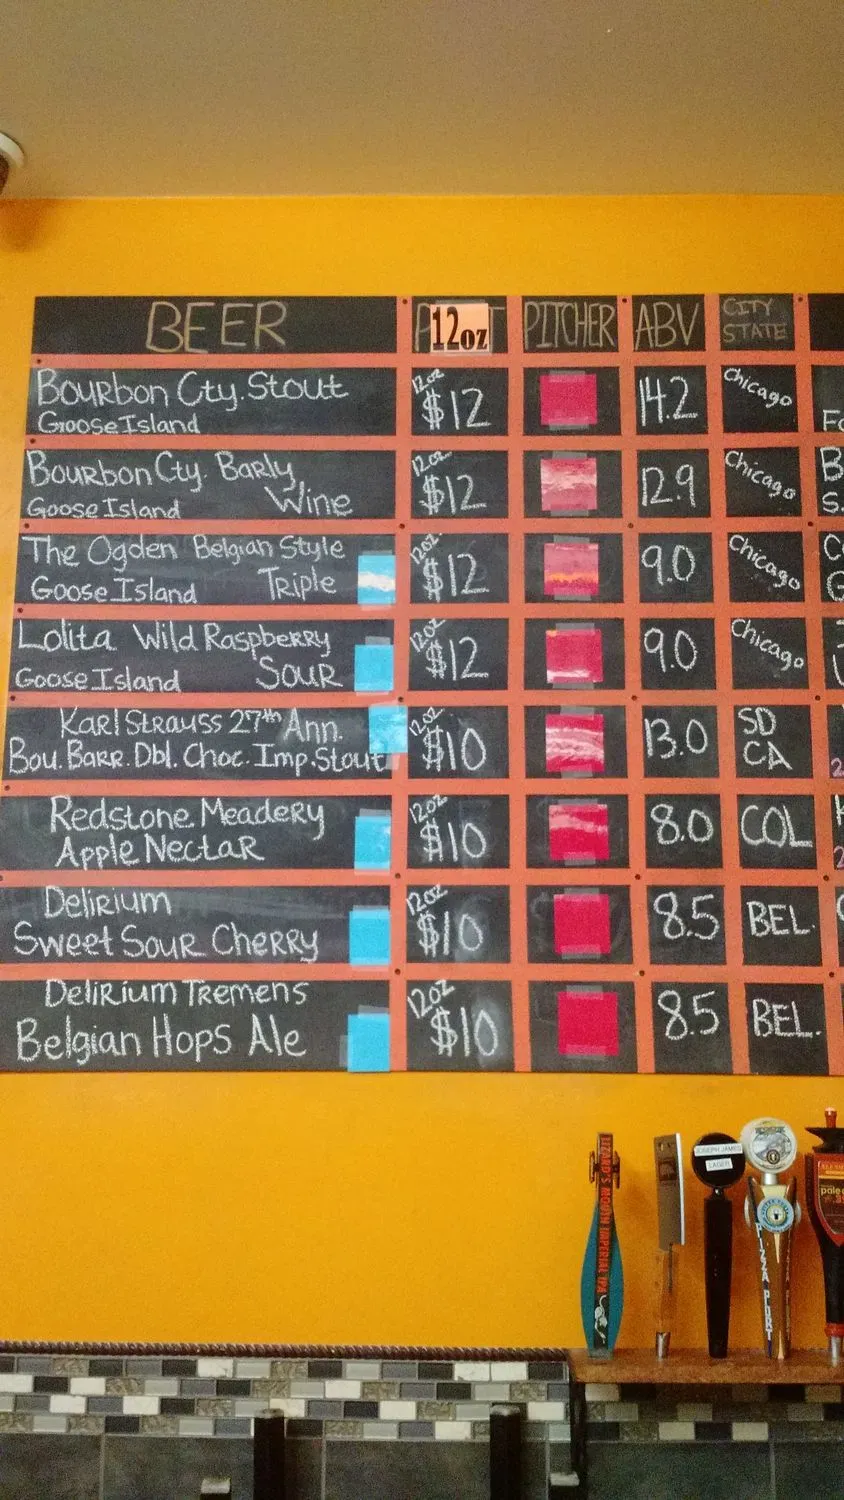 BEER 12oz PITCHER ABV CITY STATE
Bourbon Cty. Stout
Goose Island
12oz
$12
14.2
Chicago
Bourbon Cty. Barly
Wine
Goose Island
12oz
$12
12.9
Chicago
The Ogden Belgian Style
Goose Island Triple
12oz
$12
9.0
Chicago
Lolita Wild Raspberry
Goose Island Sour
12oz
$12
9.0
Chicago
Karl Strauss 27th Ann.
Bou. Barr. Dbl. Choc. Imp. Stout
12oz
$10
13.0
SD
CA
Redstone Meadery
Apple Nectar
12oz
$10
8.0
COL
Delirium
Sweet Sour Cherry
12oz
$10
8.5
BEL.
Delirium Tremens
Belgian Hops Ale
12oz
$10
8.5
BEL.
LIZARD'S MOUTH IMPERIAL IPA
JOSEPH JAMES
LAGER
PIZZA PORT
pale